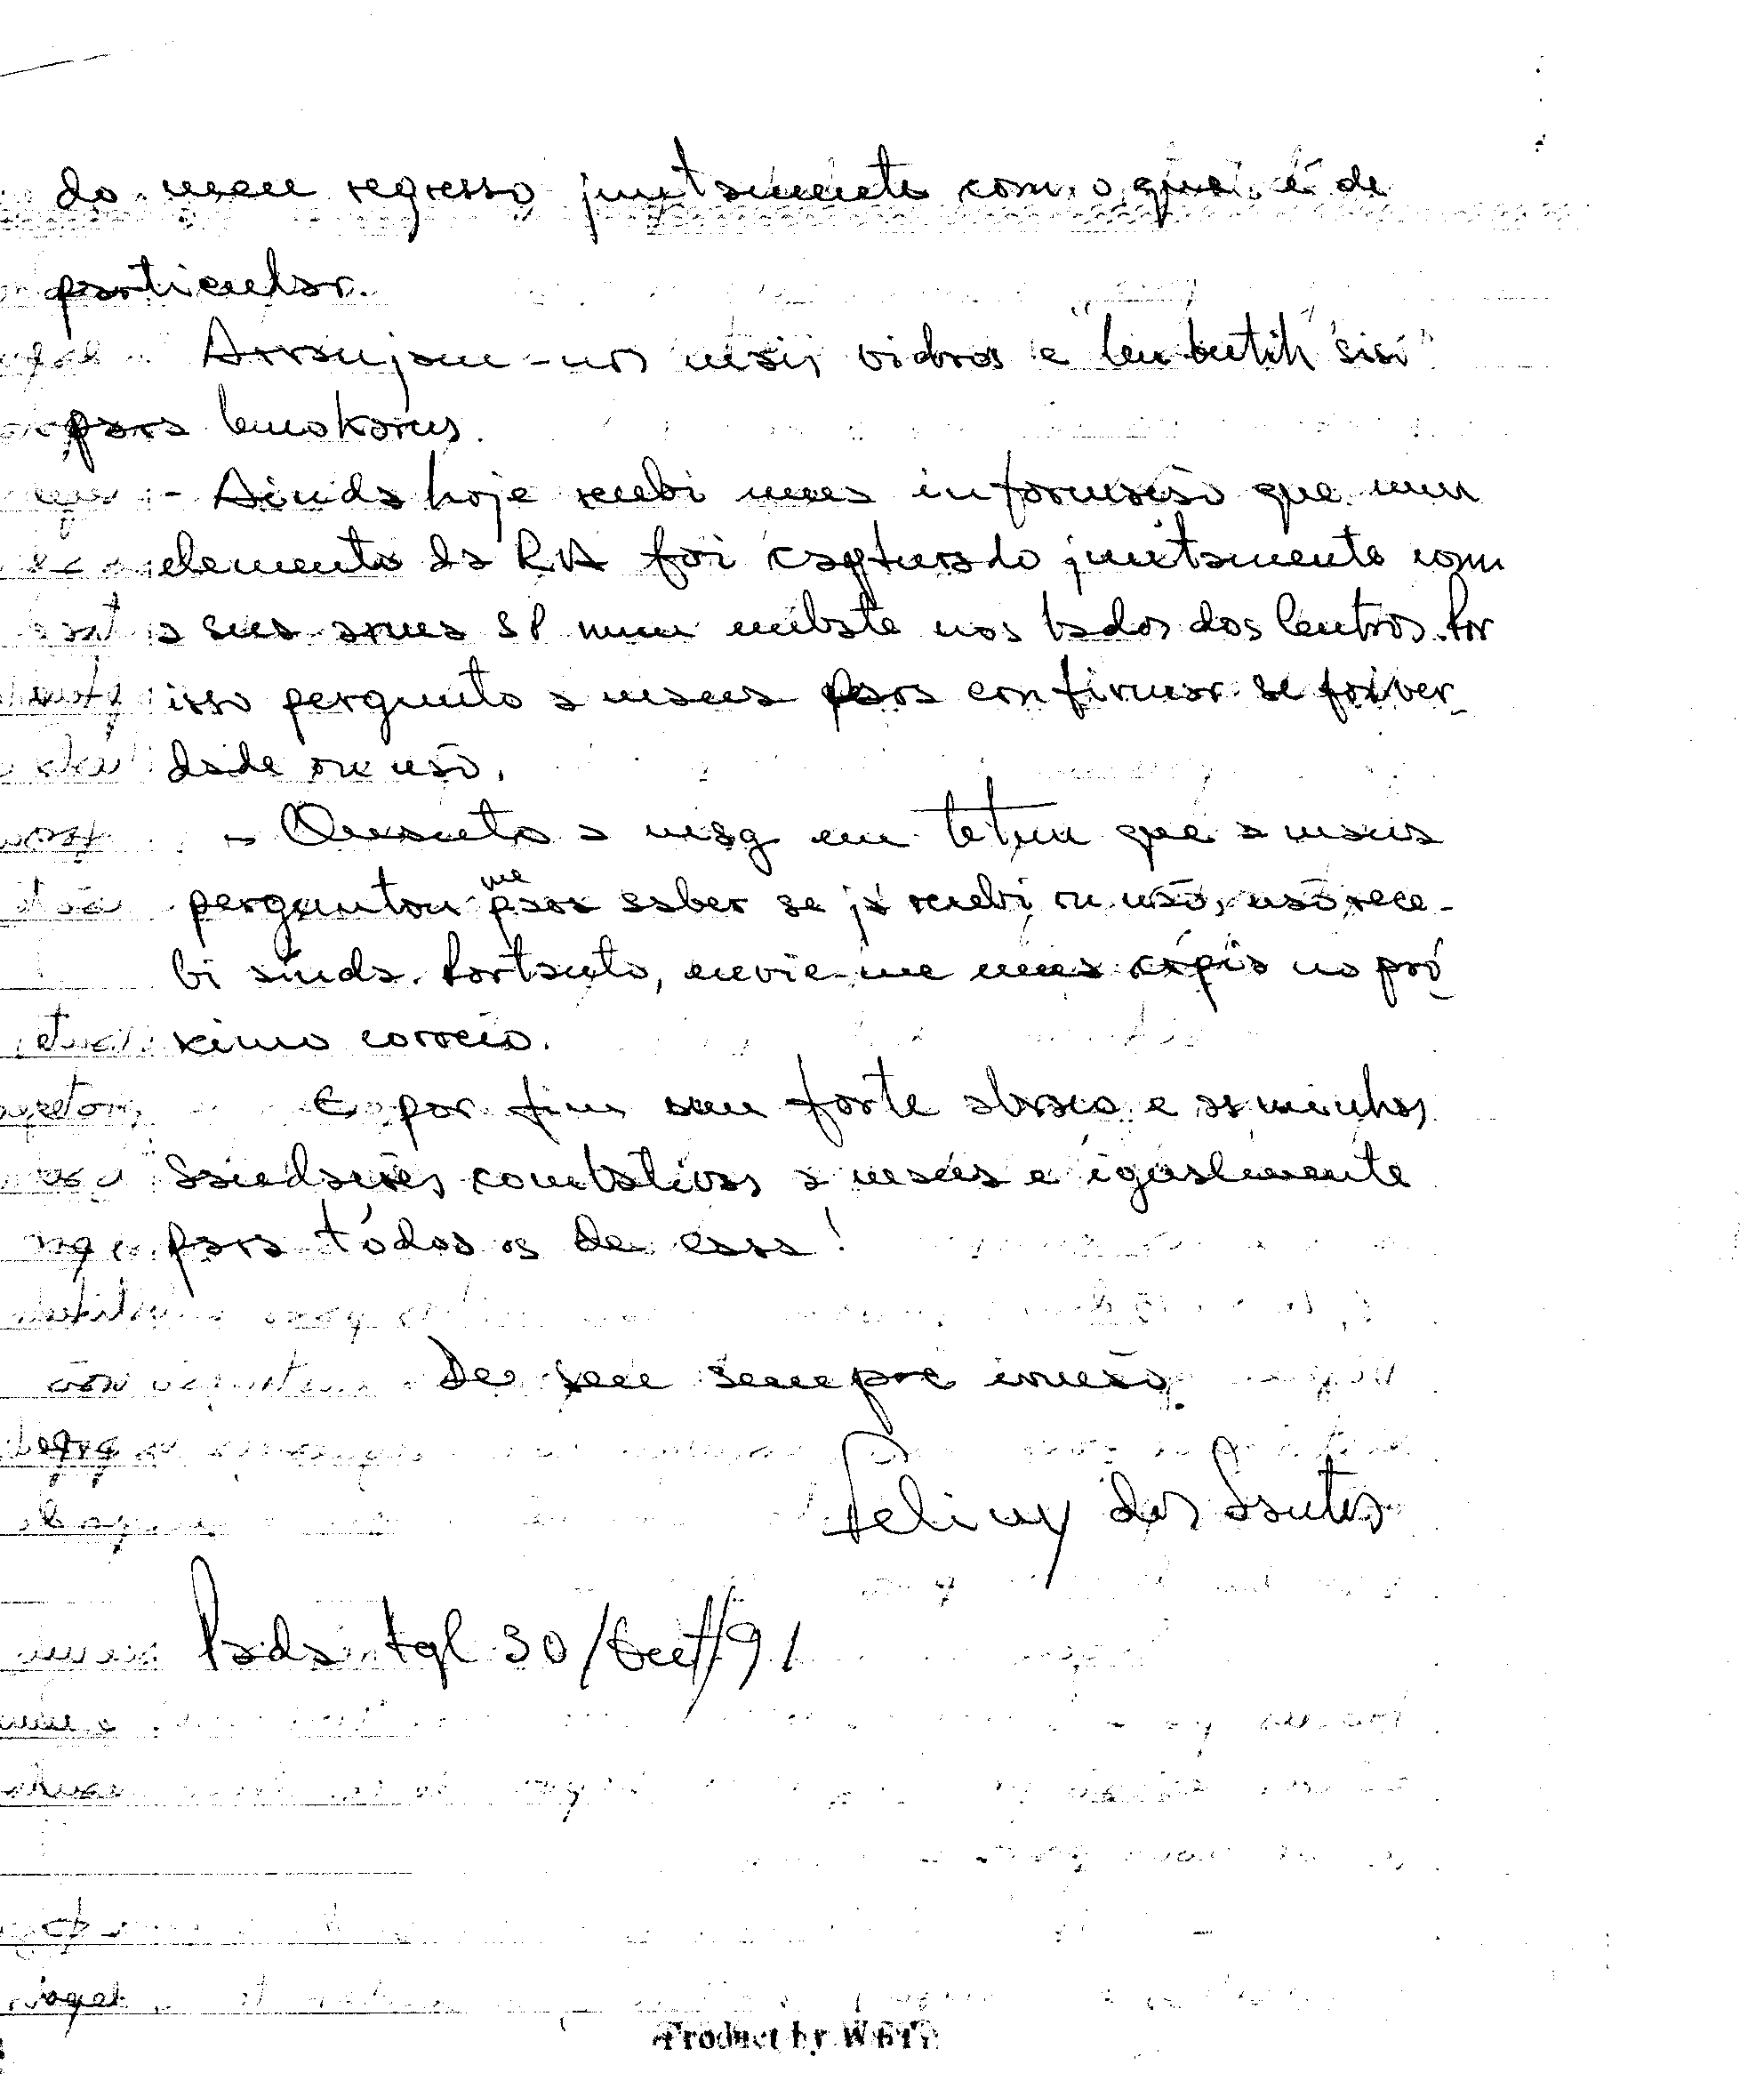 do meu regresso juntamente com o que é de
particular.
Arranjam-nos mais vidros e
para
- Ainda hoje recebi uma informação que um
elemento da RA foi capturado juntamente com
a sua arma SP num embate nos lados dos Centros. Por
isso pergunto a mana para confirmar se foi ver-
dade ou não.
- Quanto a msg em tetun que a mana
perguntou me para saber se já recebi ou não, não rece-
bi ainda. Portanto, envie-me uma cópia no pró-
ximo correio.
E por fim um forte abraço e as minhas
Saudações combativas a mana e igualmente
para tódos os de casa!
Do seu sempre irmão.
dos Santos
Pada tgl 30/Sett/91
Product by